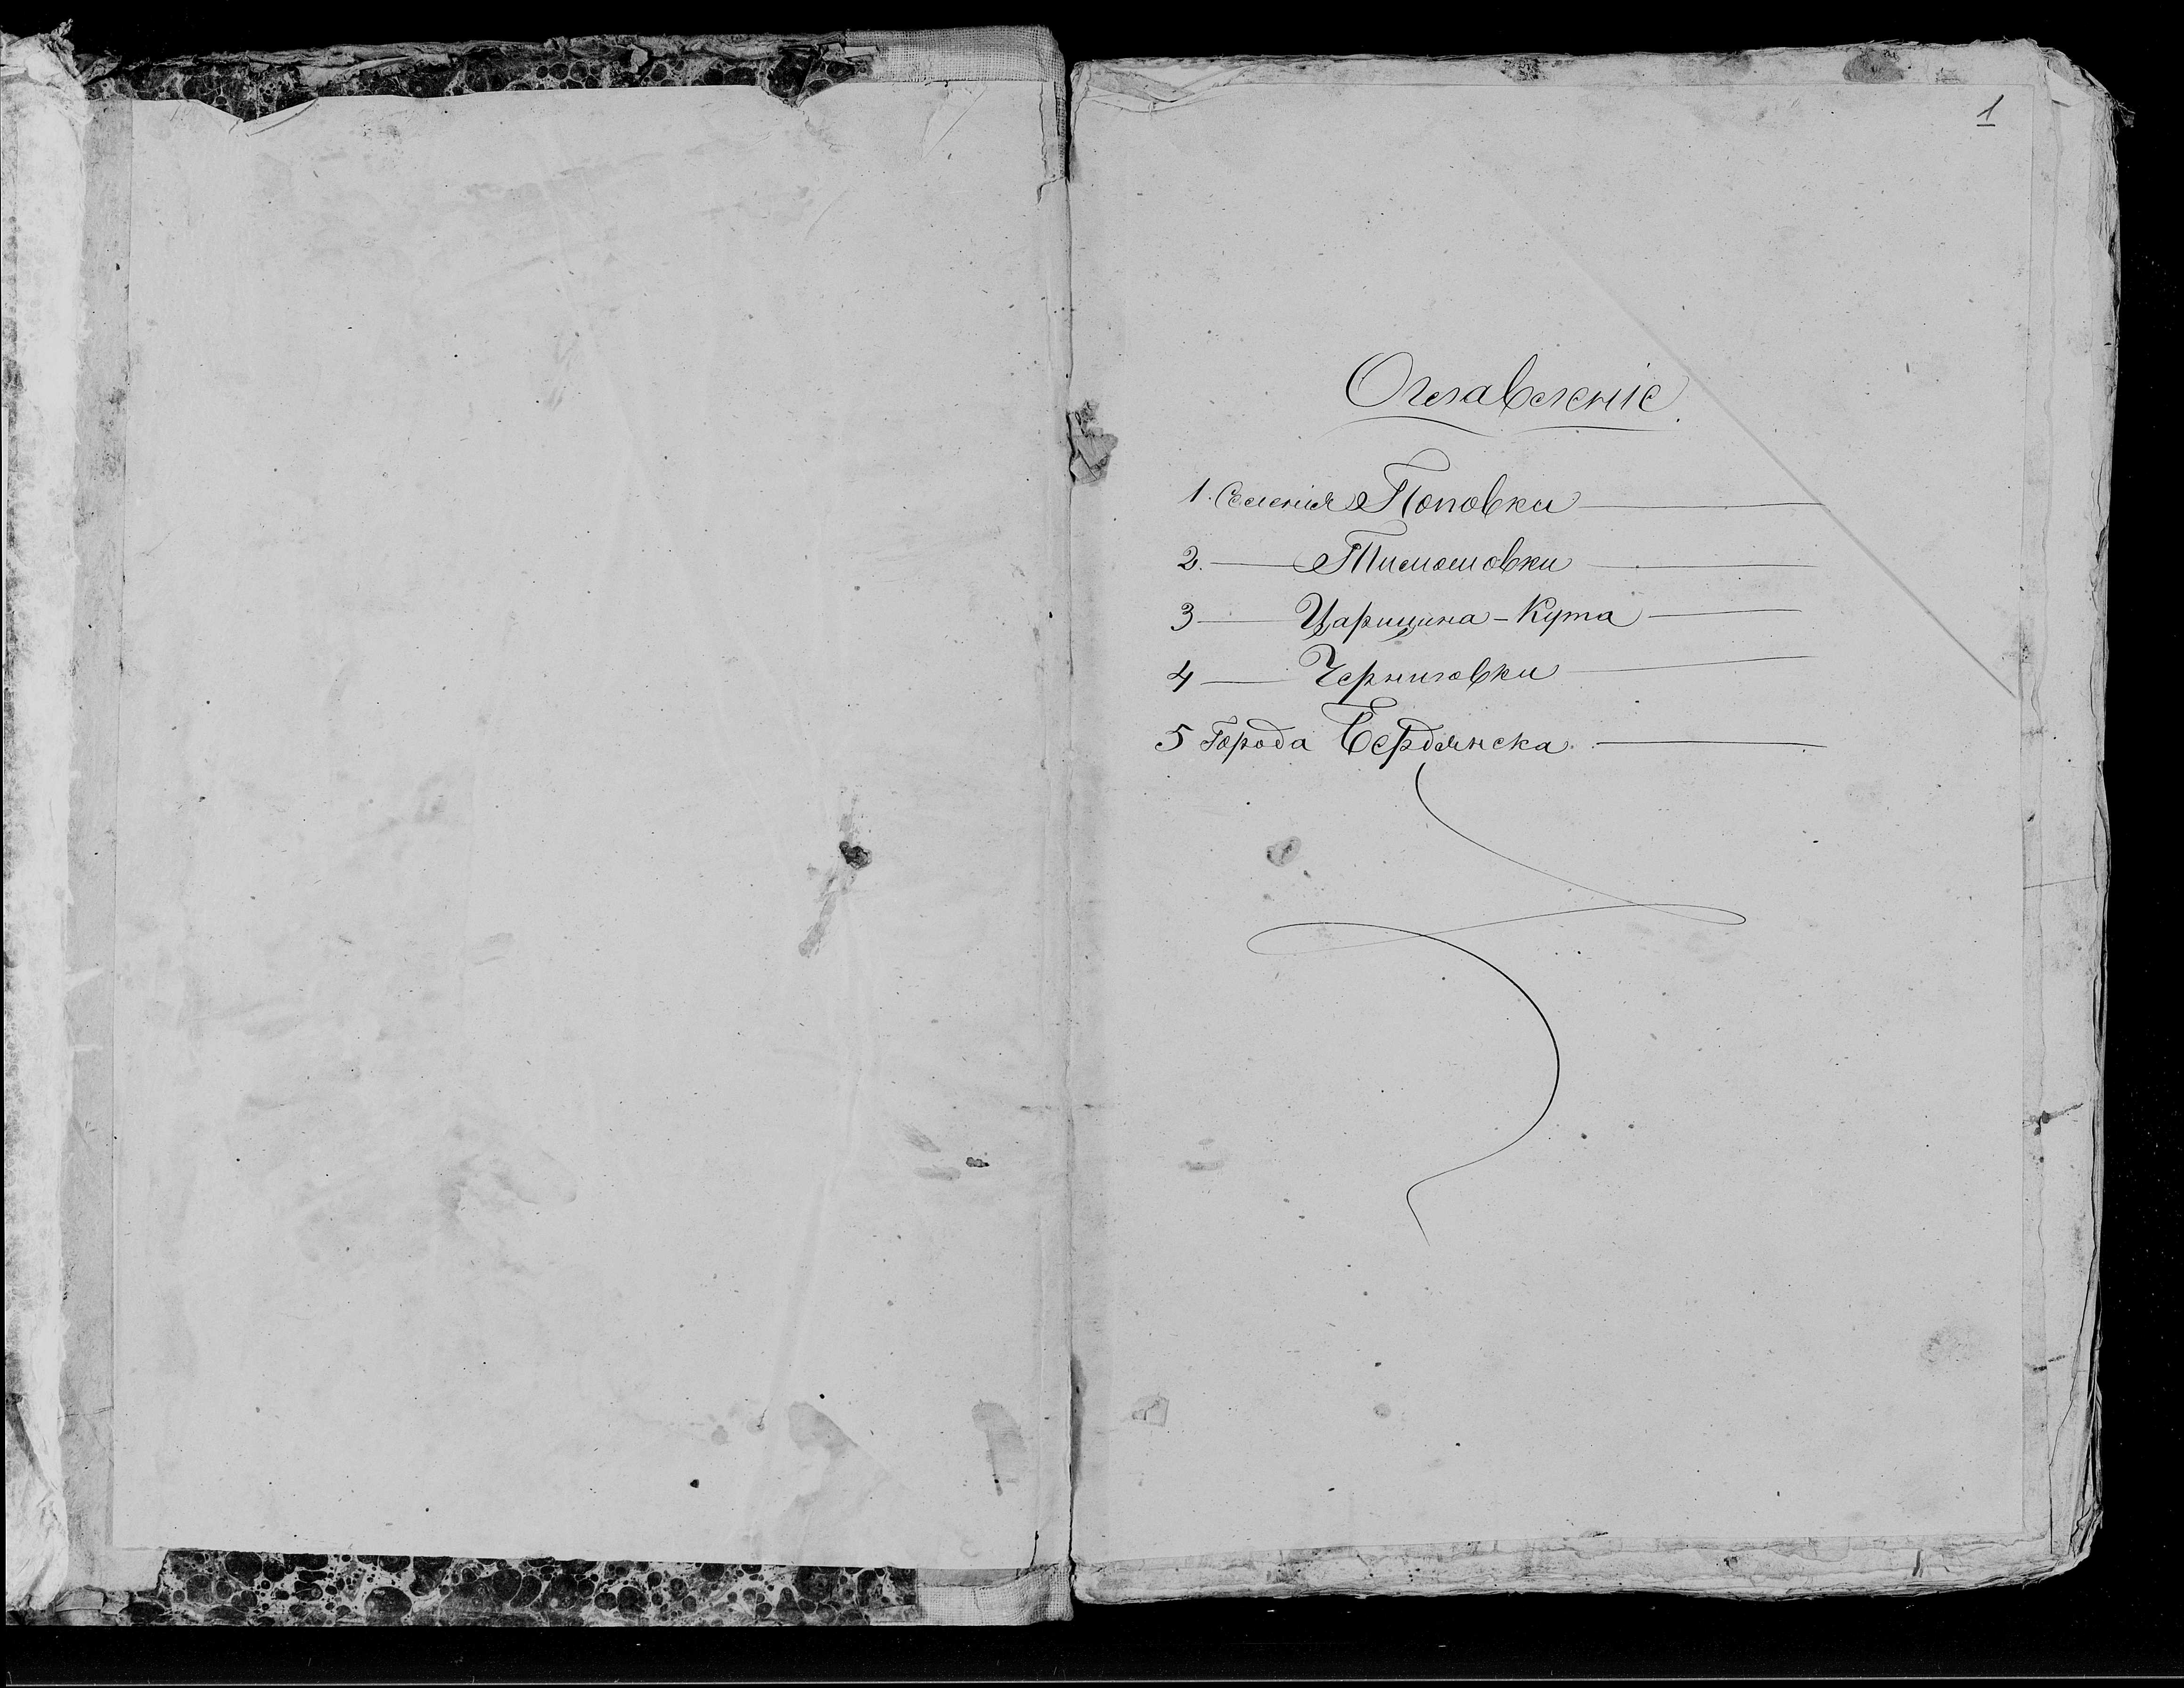 1
Оглавленіе.
1. Селенія Поповки
2. — Тимошовки
3 — Царицина-Кута
4 — Черниговки
5 Города Бердянска